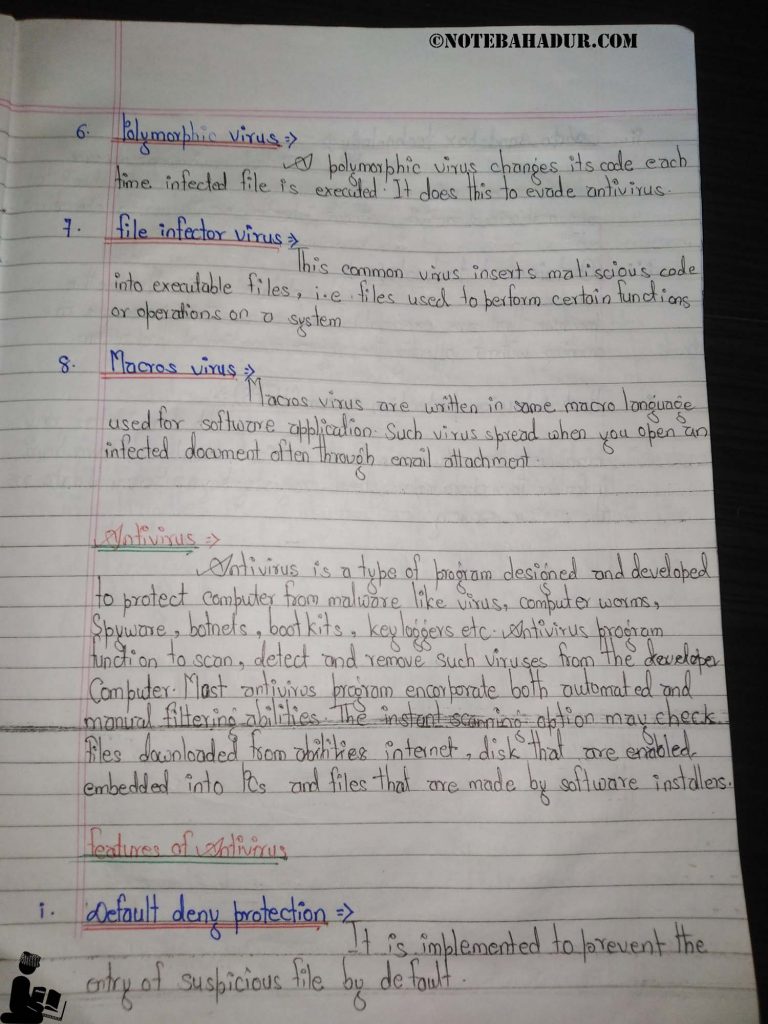 ©NOTEBAHADUR.COM
6. Polymorphic virus =>
A polymorphic virus changes its code each
time infected file is executed. It does this to evade antivirus.
7. file infector virus =>
This common virus inserts maliscious code
into executable files, i.e files used to perform certain functions
or operations on a system
8. Macros virus =>
Macros virus are written in same macro language
used for software application. Such virus spread when you open an
infected document often through email attachment.
Antivirus =>
Antivirus is a type of program designed and developed
to protect computer from malware like virus, computer worms,
Spyware, botnets, boot kits, keyloggers etc. Antivirus program
function to scan, detect and remove such viruses from the developer
Computer. Most antivirus program encorporate both automated and
manual filtering abilities. The instant scanning option may check
files downloaded from abilities internet, disk that are enabled
embedded into PCs and files that are made by software installers.
features of Antivirus
i. Default deny protection =>
It is implemented to prevent the
entry of suspicious file by default.